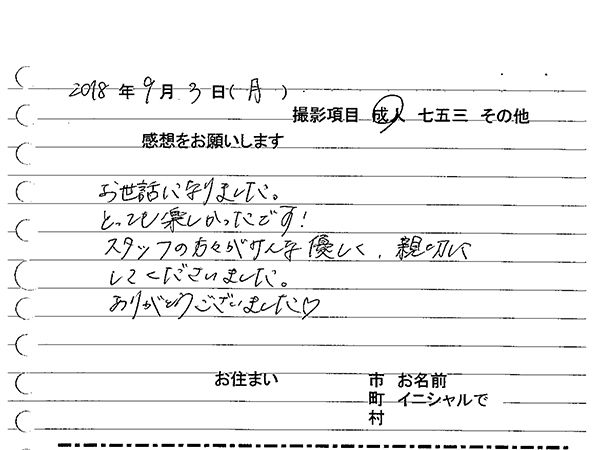 2018 年 9 月 3 日( 月 )
撮影項目 成人 七五三 その他
感想をお願いします
お世話になりました。
とっても楽しかったです!
スタッフの方々がみんな優しく、親切に
してくださいました。
ありがとうございました♡
お住まい 市 お名前
町 イニシャルで
村